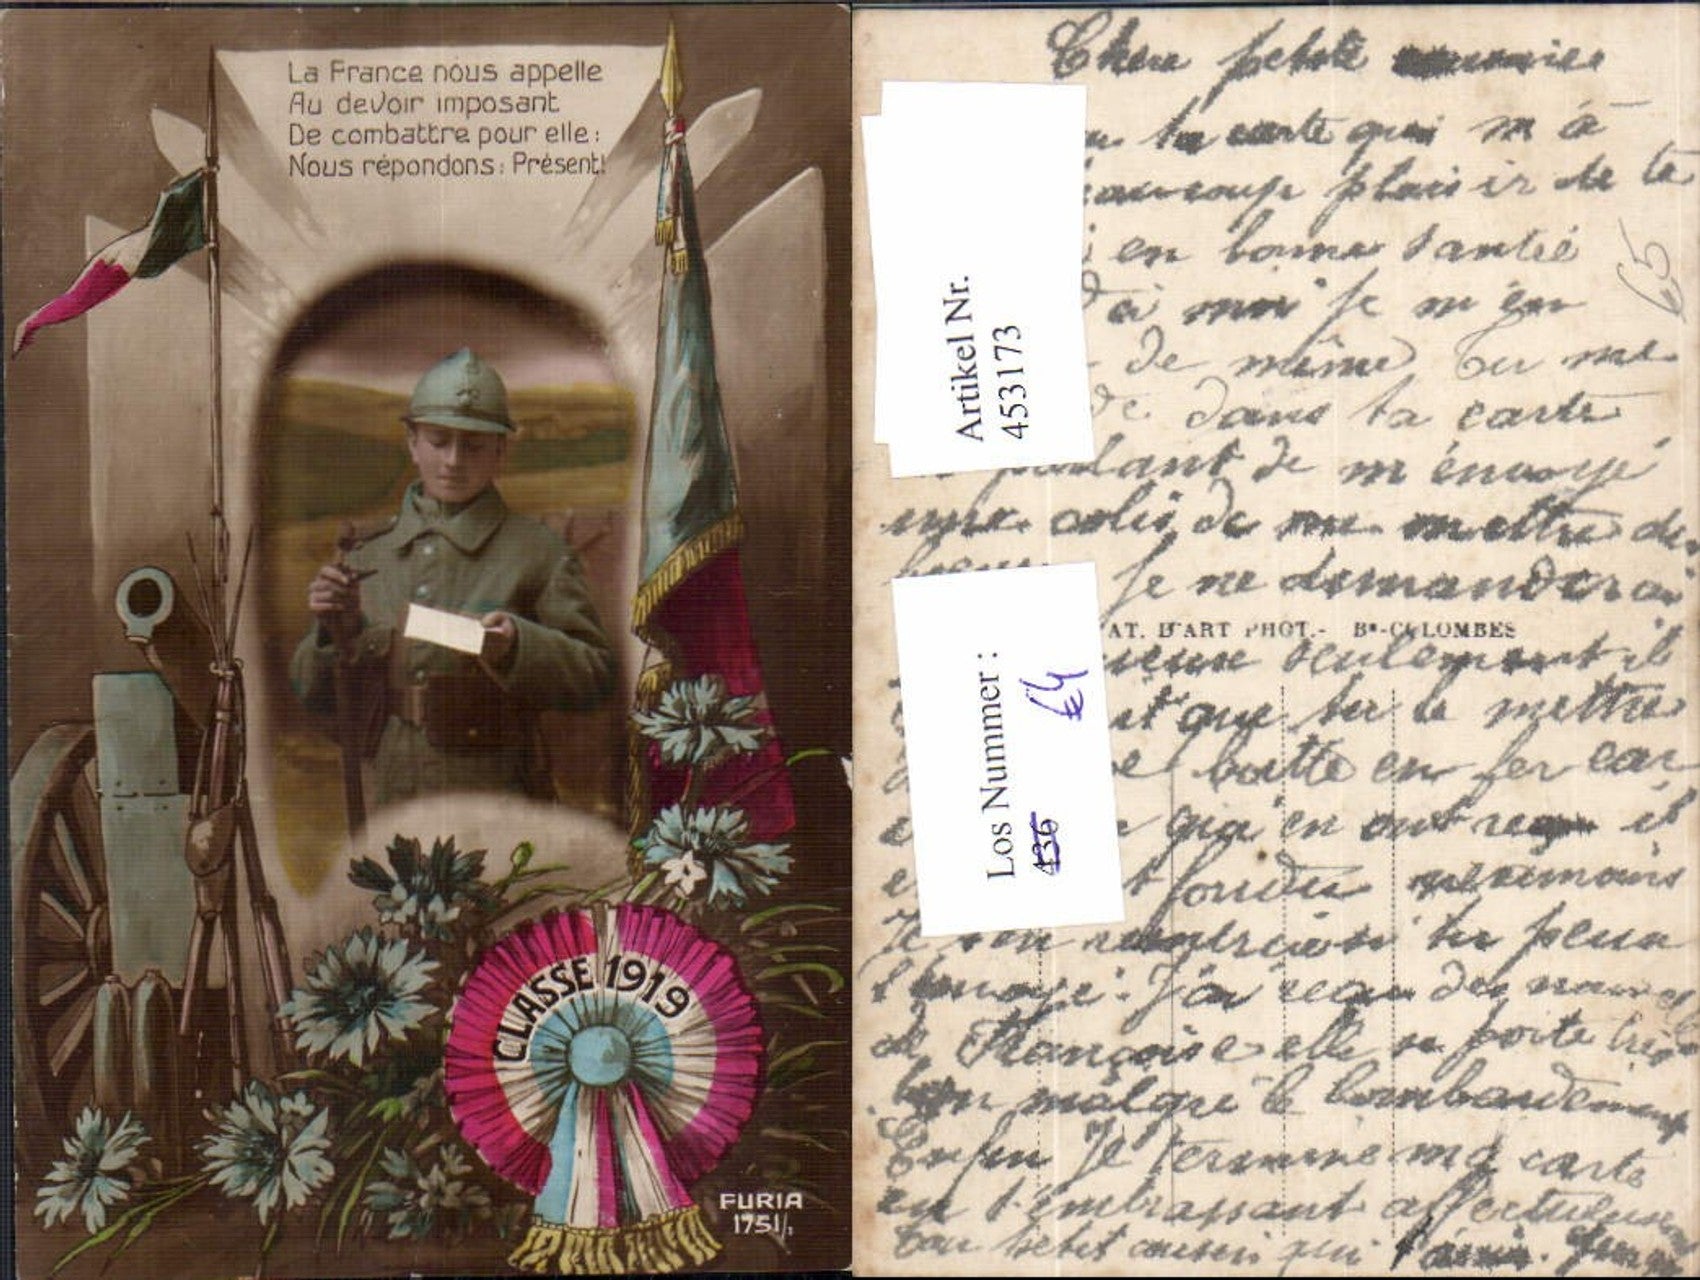 La France nous appelle
Au devoir imposant
De combattre pour elle :
Nous répondons : Présent!
CLASSE 1919
FURIA
1751/1
Artikel Nr.
453173
Los Nummer :
136
€4
€5
AT. D'ART PHOT.- Bs-COLOMBES
Chere petite
ta carte qui m à
plaisir de te
en bonne Santié
moi je m'en
de même Tu me
dans ta carte
parlant de m'envoyé
une colis de me mettre
Je ne demanderai
seulement il
que tu le mettre
boitte en fer car
qui en ont reçu et
fondu neremoins
tu peux
l'envoyé. J'ai reçu des nouvel
de Françoise elle se porte très
bon malgré le bombardement
Enfin Je termine ma carte
en t'embrassant affectueuse
Ton petit cousin qui t'aime.